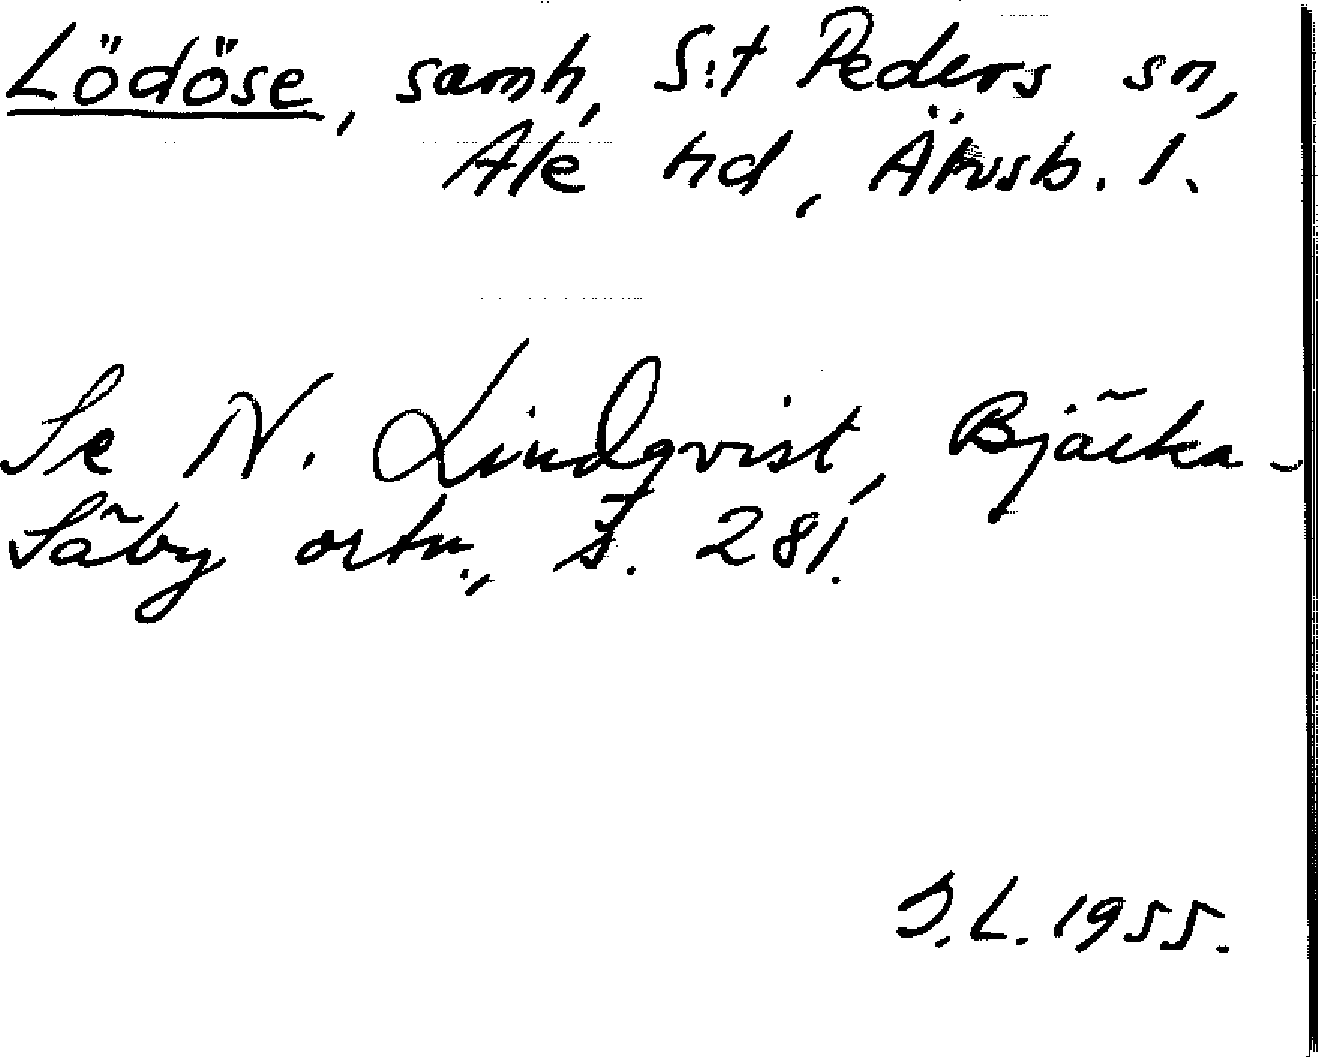 Lödöse, samh, S:t Peders sn,
Ale hd, Älvsb. l.
Se N. Lindqvist, Bjärka-
Säby ortn., I. 281.
I.L. 1955.